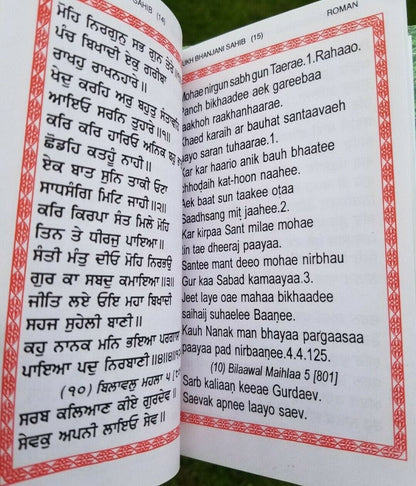 SAHIB (14)
ਮੋਹਿ ਨਿਰਗੁਣ ਸਭ ਗੁਣ ਤੇਰੇ
ਪੰਚ ਬਿਖਾਦੀ ਏਕੁ ਗਰੀਬਾ
ਰਾਖਹੁ ਰਾਖਨਹਾਰੇ॥
ਖੇਦੁ ਕਰਹਿ ਅਰੁ ਬਹੁਤੁ ਸੰਤਾਵਹਿ
ਆਇਓ ਸਰਨਿ ਤੁਹਾਰੇ॥੧॥
ਕਰਿ ਕਰਿ ਹਾਰਿਓ ਅਨਿਕ ਬਹੁ
ਛੋਡਹਿ ਕਤਹੂੰ ਨਾਹੀ॥
ਏਕ ਬਾਤ ਸੁਨਿ ਤਾਕੀ ਓਟਾ
ਸਾਧਸੰਗਿ ਮਿਟਿ ਜਾਹੀ॥੨॥
ਕਰਿ ਕਿਰਪਾ ਸੰਤ ਮਿਲੇ ਮੋਹਿ
ਤਿਨ ਤੇ ਧੀਰਜੁ ਪਾਇਆ॥
ਸੰਤੀ ਮੰਤੁ ਦੀਓ ਮੋਹਿ ਨਿਰਭਉ
ਗੁਰ ਕਾ ਸਬਦੁ ਕਮਾਇਆ॥੩॥
ਜੀਤਿ ਲਏ ਓਇ ਮਹਾ ਬਿਖਾਦੀ
ਸਹਜ ਸੁਹੇਲੀ ਬਾਣੀ॥
ਕਹੁ ਨਾਨਕ ਮਨਿ ਭਇਆ ਪਰਗਾਸਾ
ਪਾਇਆ ਪਦੁ ਨਿਰਬਾਣੀ॥੪॥੪॥
(੧੦) ਬਿਲਾਵਲੁ ਮਹਲਾ ੫
ਸਰਬ ਕਲਿਆਣ ਕੀਏ ਗੁਰਦੇਵ॥
ਸੇਵਕੁ ਅਪਨੀ ਲਾਇਓ ਸੇਵ॥
UKH BHANJANI SAHIB (15) ROMAN
Mohae nirgun sabh gun Taerae.1.Rahaao.
Panch bikhaadee aek gareebaa
aakhoh raakhanhaarae.
Khaed karaih ar bauhat santaavaeh
aayo saran tuhaarae.1.
Kar kar haario anik bauh bhaatee
chhodaih kat-hoon naahee.
Aek baat sun taakee otaa
Saadhsang miṭ jaahee.2.
Kar kirpaa Sant milae mohae
tin tae dheeraj paayaa.
Santee mant deeo mohae nirbhau
Gur kaa Sabad kamaayaa.3.
Jeet laye oae mahaa bikhaadee
saihaij suhaelee Baaṇee.
Kauh Nanak man bhayaa pargaasaa
paayaa pad nirbaaṇee.4.4.125.
(10) Bilaawal Maihlaa 5 [801]
Sarb kaliaaṇ keeae Gurdaev.
Saevak apnee laayo saev.